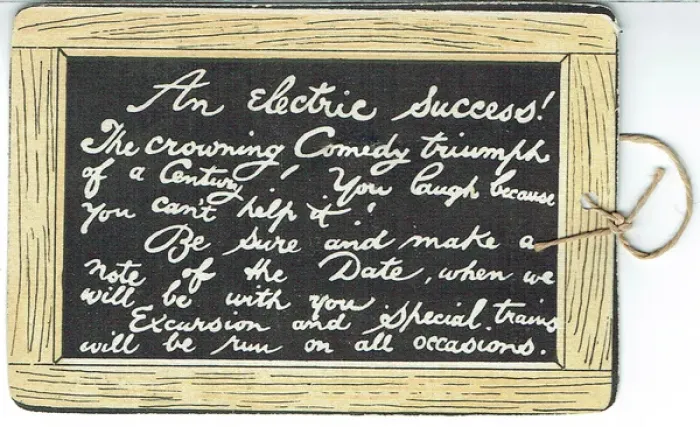 An Electric Success!
The crowning Comedy triumph
of a Century! You laugh because
you can't help it!
Be sure and make a
note of the Date, when we
will be with you.
Excursion and special trains
will be run on all occasions.